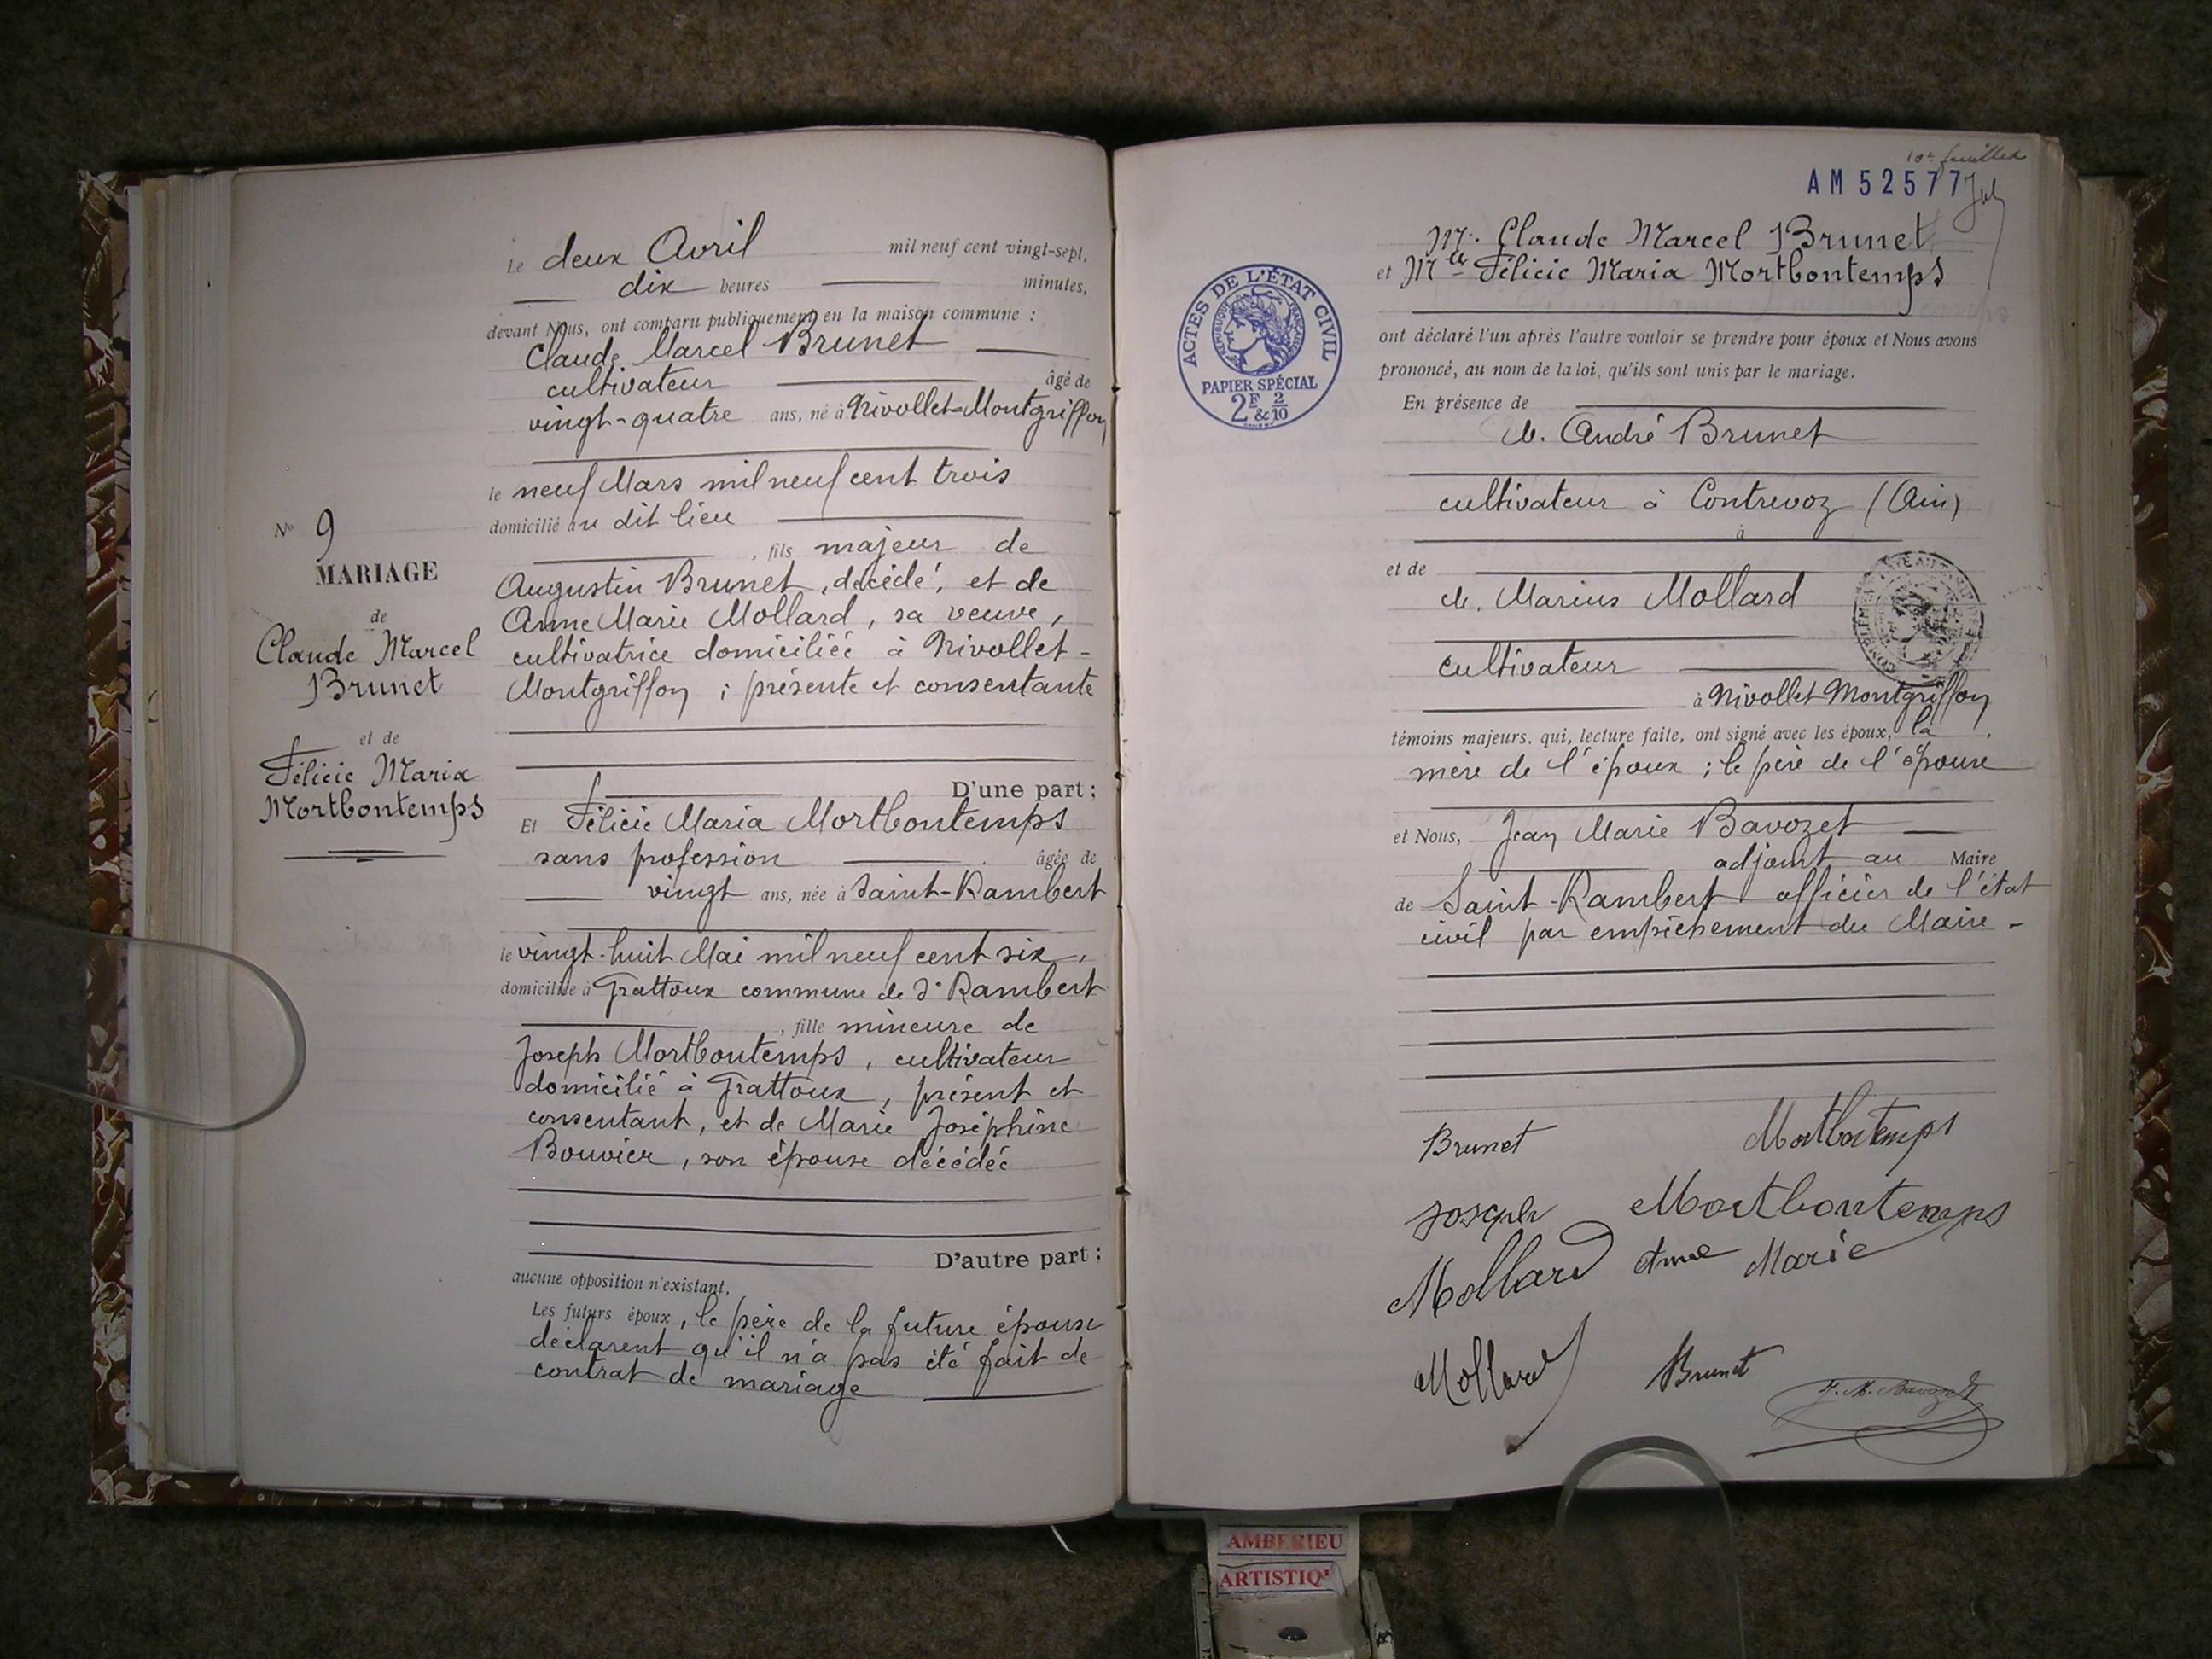 Le deux Avril mil neuf cent vingt-sept,
dix heures minutes,
devant Nous, ont comparu publiquement en la maison commune :
Claude Marcel Brunet
cultivateur âgé de
vingt-quatre ans, né à Nivollet-Montgriffon
le neuf Mars mil neuf cent trois
domicilié au dit lieu
, fils majeur de
Augustin Brunet, décédé, et de
Anne Marie Mollard, sa veuve,
cultivatrice domiciliée à Nivollet-
Montgriffon ; présente et consentante
D'une part ;
Et Félicie Maria Mortbontemps
sans profession âgée de
vingt ans, née à Saint-Rambert
le vingt-huit Mai mil neuf cent six,
domiciliée à Grattoux commune de St Rambert
, fille mineure de
Joseph Mortbontemps, cultivateur
domicilié à Grattoux, présent et
consentant, et de Marie Joséphine
Bouvier, son épouse décédée
D'autre part ;
aucune opposition n'existant,
Les futurs époux, le père de la future épouse
déclarent qu'il n'a pas été fait de
contrat de mariage
No 9
MARIAGE
de
Claude Marcel
Brunet
et de
Félicie Maria
Mortbontemps
10e feuillet
AM 52577
Mr. Claude Marcel Brunet
et Mlle Félicie Maria Mortbontemps
ont déclaré l'un après l'autre vouloir se prendre pour époux et Nous avons
prononcé, au nom de la loi, qu'ils sont unis par le mariage.
En présence de
M. André Brunet
cultivateur à Contrevoz (Ain)
à
et de
M. Marius Mollard
cultivateur
à Nivollet Montgriffon
témoins majeurs. qui, lecture faite, ont signé avec les époux, la
mère de l'époux ; le père de l'épouse
et Nous, Jean Marie Bavozet
adjoint au Maire
de Saint-Rambert officier de l'état
civil par empêchement du Maire -
Brunet Mortbontemps
Joseph Mortbontemps
Mollard Anne Marie
Mollard Brunet J. M. Bavozet
ACTES DE L'ÉTAT CIVIL
RÉPUBLIQUE FRANÇAISE
PAPIER SPÉCIAL
2F & 2/10
AMBERIEU
ARTISTIQ